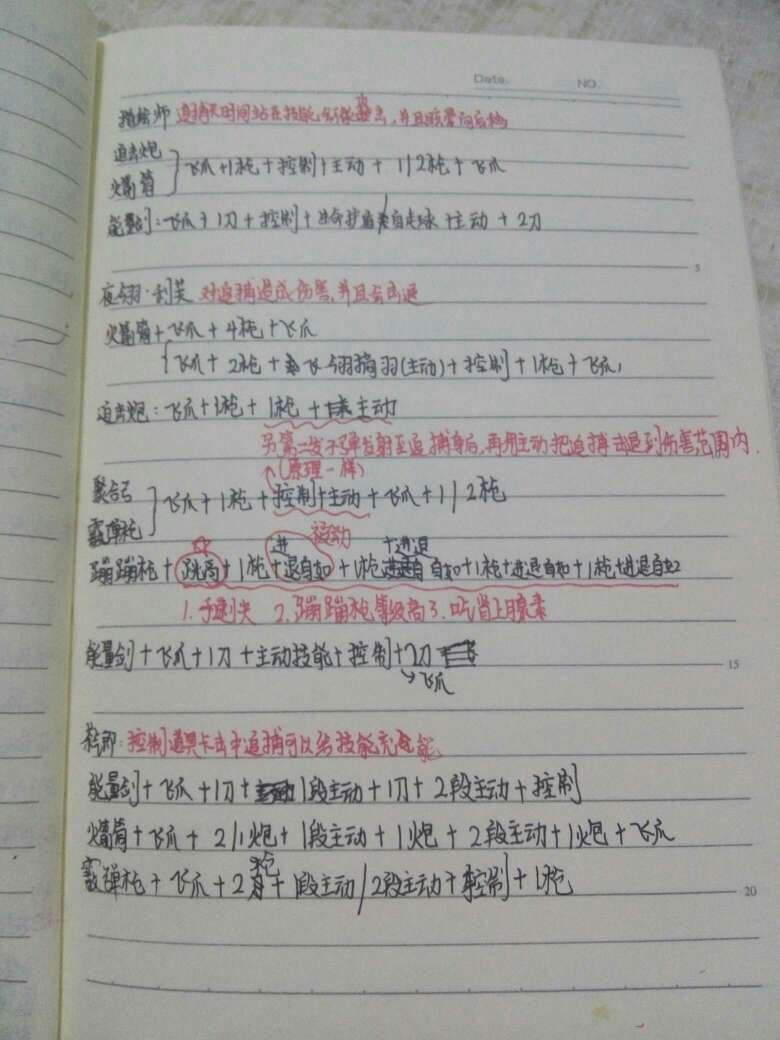 Date. NO.
描绘师 追捕长时间站在技能 会被 击，并且
迫击炮
火箭筒 } 飞爪+1枪+控制+主动+1/2枪+飞爪
能量剑：飞爪+1刀+控制+ 护盾/自走球+主动+2刀
5
夜翎·利芙 对追捕造成伤害，并且会击退
火箭筒+飞爪+4枪+飞爪
飞爪+2枪+飞翎摘羽(主动)+控制+1枪+飞爪，
迫击炮：飞爪+1枪+1枪+主动
另第二发子弹发射至追捕身后，再用主动把追捕击退到伤害范围内.
↑(原理一样)
聚合弓
霰弹枪 } 飞爪+1枪+控制+主动+飞爪+1/2枪
☆ 进 被动 +进退
蹦蹦枪+跳高+1枪+退自如+1枪 自如+1枪+进退自如+1枪+进退自如2
1.手速快 2.蹦蹦枪等级高 3.吃肾上腺素
能量剑+飞爪+1刀+主动技能+控制+2刀
15
↘飞爪
：控制道具卡击中追捕可以给技能充能
能量剑+飞爪+1刀+1段主动+1刀+2段主动+控制
火箭筒+飞爪+2/1炮+1段主动+1炮+2段主动+1炮+飞爪
霰弹枪+飞爪+2枪+1段主动/2段主动+控制+1枪
20